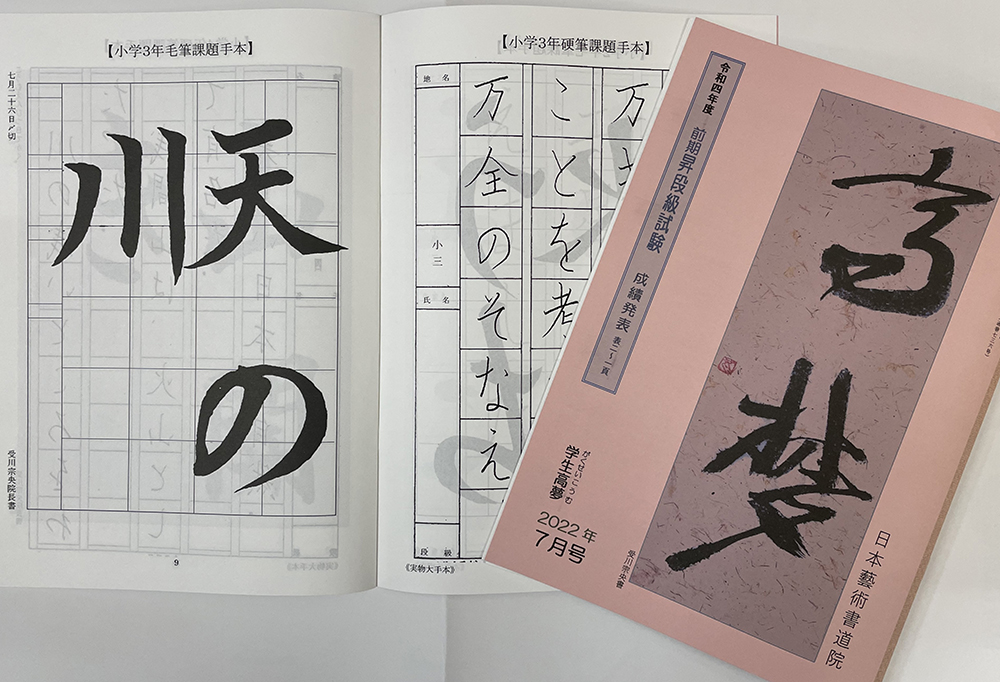 【小学3年毛筆課題手本】
七月二十六日〆切
天の
川
受川宗央院長書
9
【小学3年硬筆課題手本】
万
ことを考
万全のそなえ
地名
小三
氏名
段級
《実物大手本》
高夢
令和四年度 前期昇段級試験 成績発表 表二〜一頁
がくせいこうむ
学生高夢
2022年
7月号
受川宗央書
日本藝術書道院